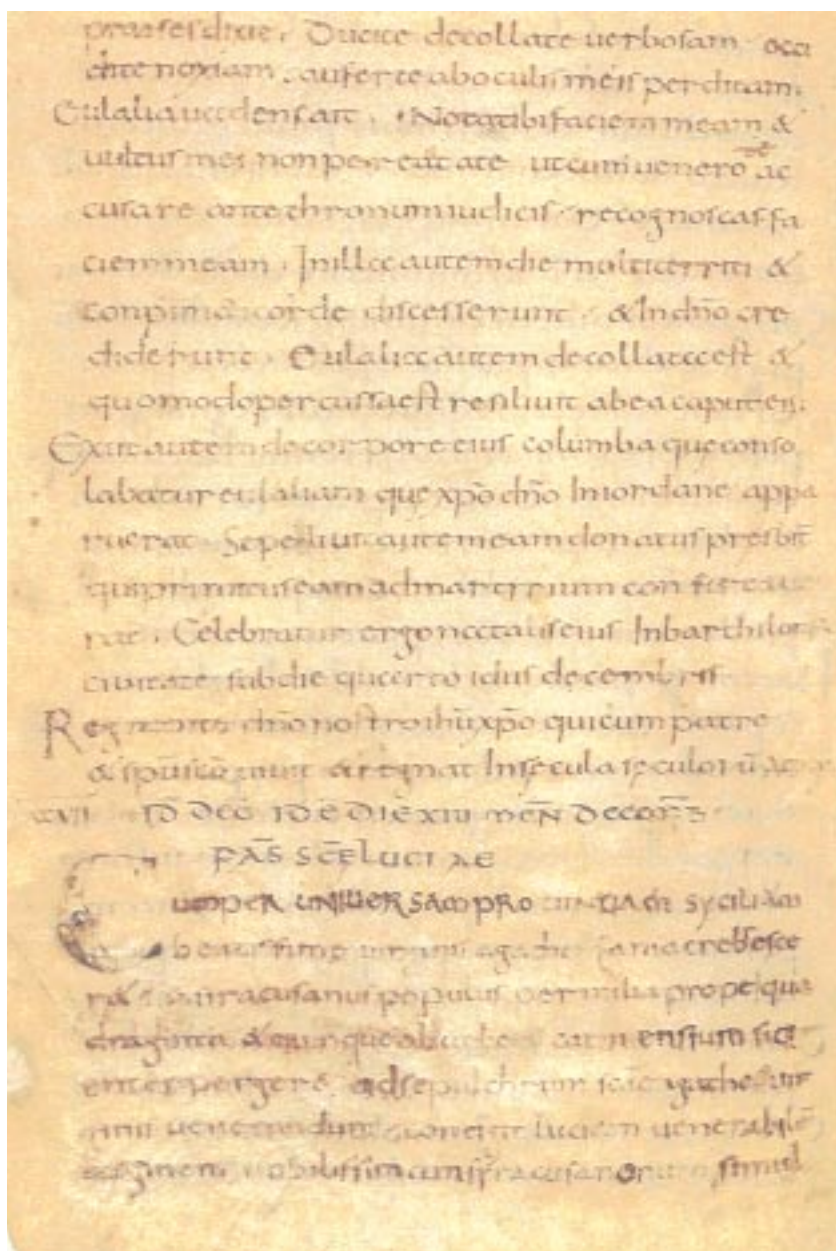 praeses dixit. Ducite decollate uerbosam occi
dite noxiam. auferte ab oculis meis perditam.
Eulalia uidens ait. Notate tibi faciem meam &
uultus mei non pereat a te ut cum uenero te ac
cusare ante thronum iudicis recognoscas fa
ciem meam. In illa autem die multi territi &
conpuncti corde discesserunt & In dño cre
diderunt. Eulalia autem decollata est &
quomodo percussa est resiliuit ab ea caput eius.
Exiit autem de corpore eius columba que conso
labatur eulaliam que xpõ dño In iordane appa
ruerat. Sepeliuit autem eam donatus presbit̄
qui primitus eam ad martirium
rat. Celebratur ergo natalis eius In barchilo
ciuitate sub die quarto idus decembris
Regnante dño nostro ihũ xpõ qui cum patre
& sp̄u sc̄o uiuit & regnat In secula seculorũ
ID DEC IDE DIE XIII MEN̄
PAS̄ SC̄E LUCIAE
CUM PER UNIUERSAM PROUINTIAM SYCILIAM
beatissime uirginis agathe fama crebresce
r& siracusanus populus per milia prope qua
draginta & quinque ab urbe catinensium sic
enter perger& ad sepulchrum sc̄e agathe
ueneranda contigit luciam uenerabilē
uirginem nobilissimam siracusanorum simul